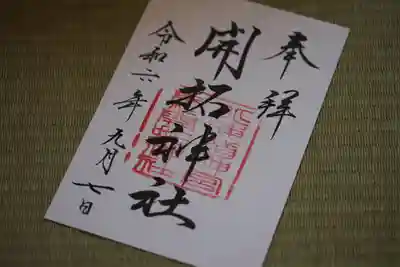 奉拝
開拓神社
令和六年九月七日